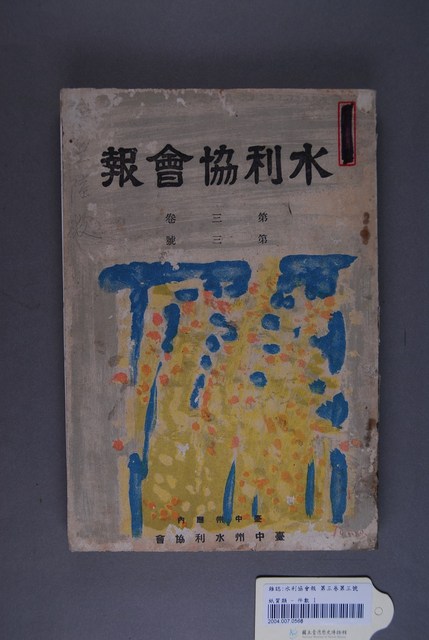 水利協會報
第三卷
第三號
臺中州廳內
臺中州水利協會
雜誌:水利協會報 第三卷第三號
紙質類 - 件數 1
2004.007.0568
國立臺灣歷史博物館